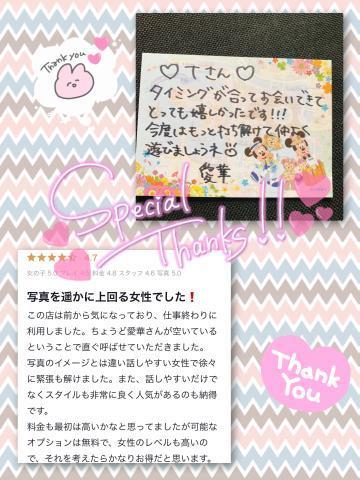 Thank you
♡Tさん♡
タイミングが合ってお会いできて
とっても嬉しかったです!!!
今度はもっと打ち解けて仲よく
遊びましょうネ
愛華
Special
Thanks!!
★★★★★ 4.7
女の子 5.0 プレイ 4.5 料金 4.8 スタッフ 4.6 写真 5.0
写真を遥かに上回る女性でした❗
この店は前から気になっており、仕事終わりに
利用しました。ちょうど愛華さんが空いている
ということで直ぐ呼ばせていただきました。
写真のイメージとは違い話しやすい女性で徐々
に緊張も解けました。また、話しやすいだけで
なくスタイルも非常に良く人気があるのも納得
です。
料金も最初は高いかなと思ってましたが可能な
オプションは無料で、女性のレベルも高いの
で、それを考えたらかなりお得だと思います。
Thank
You